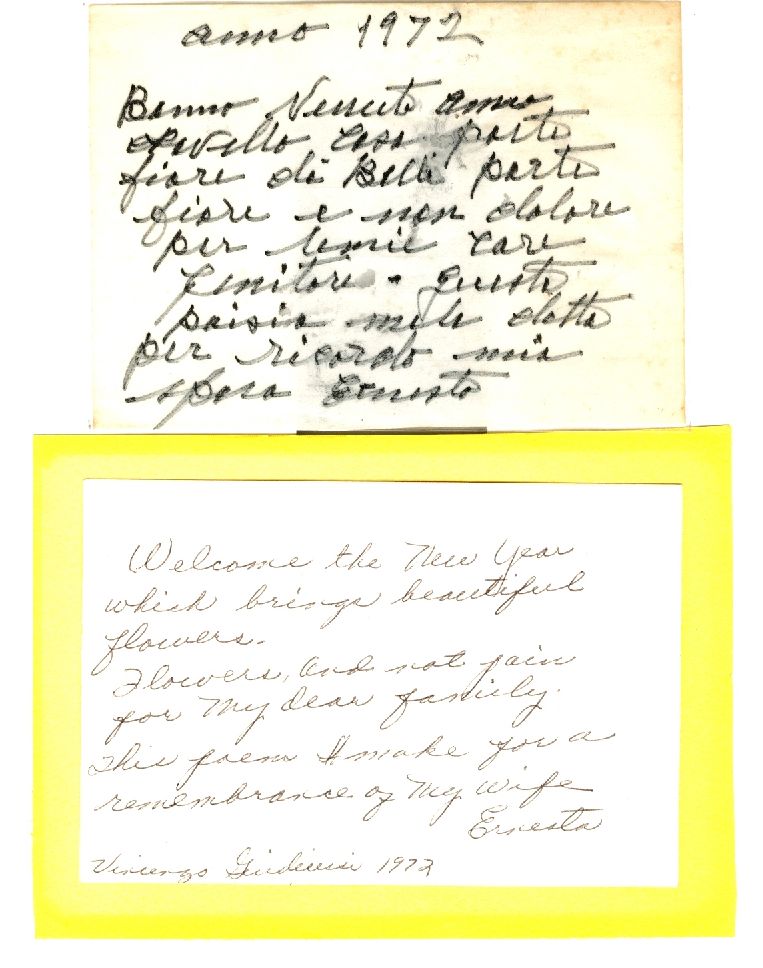 anno 1972
Benno Venuto anno
fiore di Belli porte
fiore e non dolore
per le mie care
genitore - questa
paisia mele datta
per ricordo mia
sposa Ernesta
Welcome the New Year
which brings beautiful
flowers.
Flowers, and not pain
for My dear family.
This poem I make for a
remembrance of My Wife
Ernesta
Vincenzo 1972